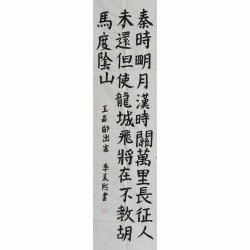 秦時明月漢時關萬里長征人
未還但使龍城飛將在不教胡
馬度陰山
王昌齡出塞 李美熙書